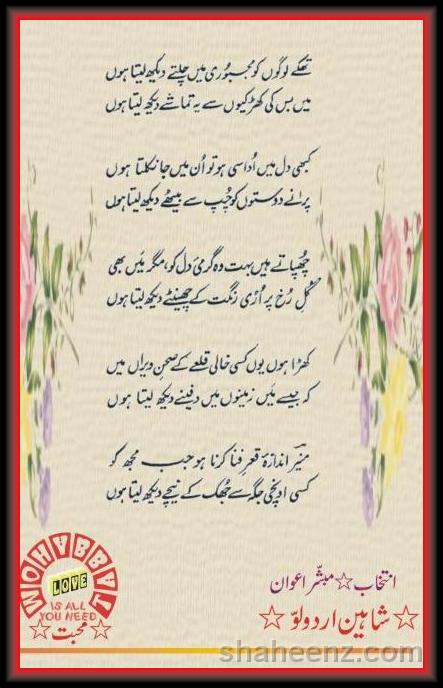 تھکے لوگوں کو مجبوری میں چلتے دیکھ لیتا ہوں
میں بس کی کھڑکیوں سے یہ تماشے دیکھ لیتا ہوں
کبھی دل میں اُداسی ہو تو اُن میں جا نکلتا ہوں
پرانے دوستوں کو چُپ سے بیٹھے دیکھ لیتا ہوں
چُھپاتے ہیں بہت وہ گرمیٔ دل کو، مگر میں بھی
گلِ رُخ پر اُڑی رنگت کے چھینٹے دیکھ لیتا ہوں
کھڑا ہوں یوں کسی خالی قلعے کے صحنِ ویراں میں
کہ جیسے میں زمینوں میں دفینے دیکھ لیتا ہوں
منیر اندازۂ قعرِ فنا کرنا ہو جب مجھ کو
کسی اونچی جگہ سے جُھک کے نیچے دیکھ لیتا ہوں
انتخاب ☆ مبشّر اعوان
☆ شاہین اردو لوّ ☆
MOHYBBAT
LOVE
IS ALL
YOU NEED
☆ محبت ☆
shaheenz.com